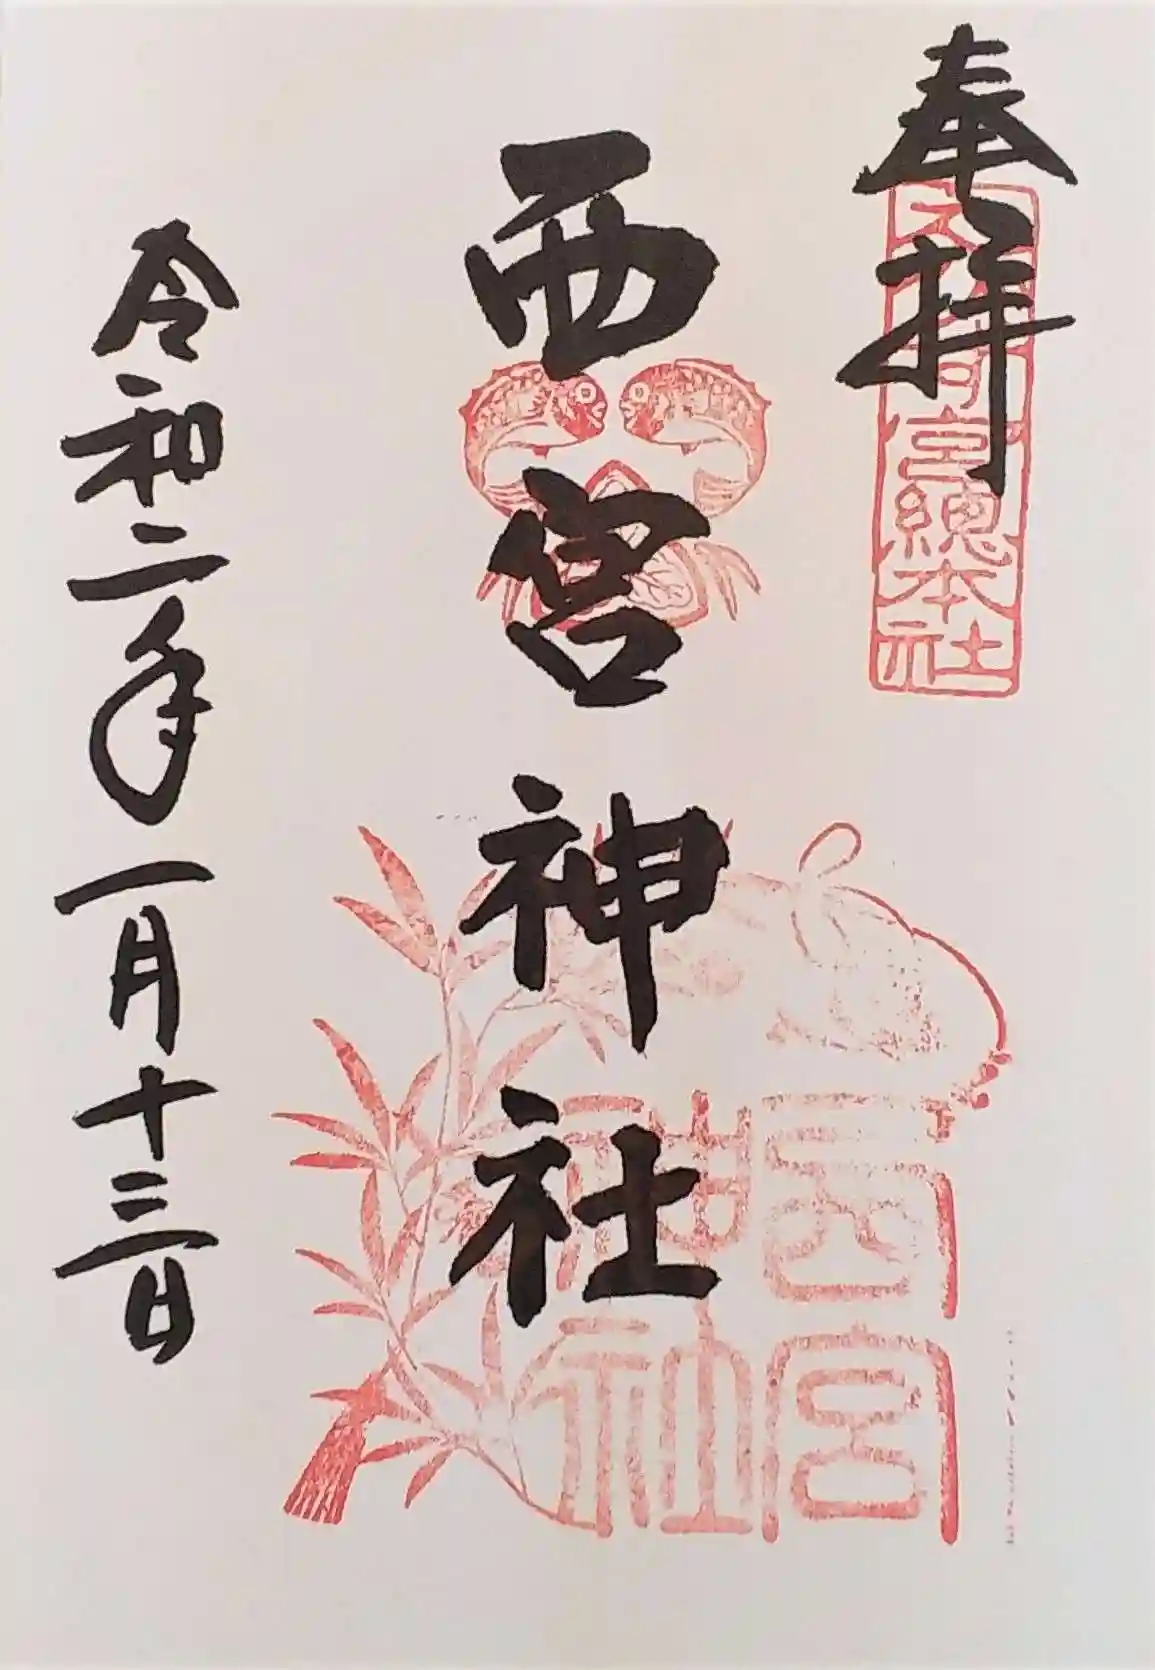 奉拝
西宮総本社
西宮神社
西宮神社
令和二年一月十三日